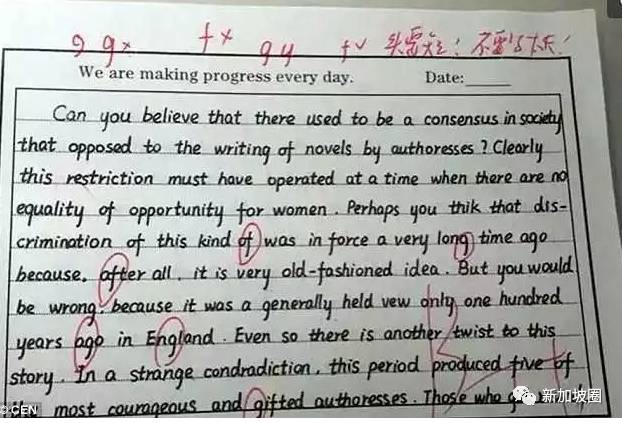 g gx fx gy f✓ 头要短! 不要
We are making progress every day. Date:
Can you believe that there used to be a consensus in society
that opposed to the writing of novels by authoresses? Clearly
this restriction must have operated at a time when there are no
equality of opportunity for women. Perhaps you thik that dis-
crimination of this kind of was in force a very long time ago
because, after all, it is very old-fashioned idea. But you would
be wrong, because it was a generally held vew only one hundred
years ago in England. Even so there is another twist to this
story. In a strange condradiction, this period produced five of
the most courageous and gifted authoresses. Those who
©CEN
新加坡圈